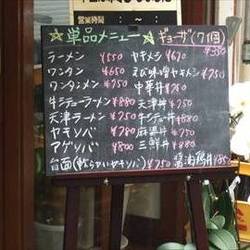 営業時間
☆単品メニュー☆ ギョーザ(7個)
¥350
ラーメン ¥550 ヤキメシ ¥670
ワンタン ¥650 えび味増ヤキメシ ¥750
ワンタンメン ¥750 中華丼 ¥750
牛シチューラーメン ¥880 天津丼 ¥750
天津ラーメン ¥750 牛シチュー丼 ¥880
ヤキソバ 麻婆丼 ¥750
アゲソバ ¥800 三鮮丼 ¥880
(軟らかいヤキソバ) ¥750 醤油鶏丼